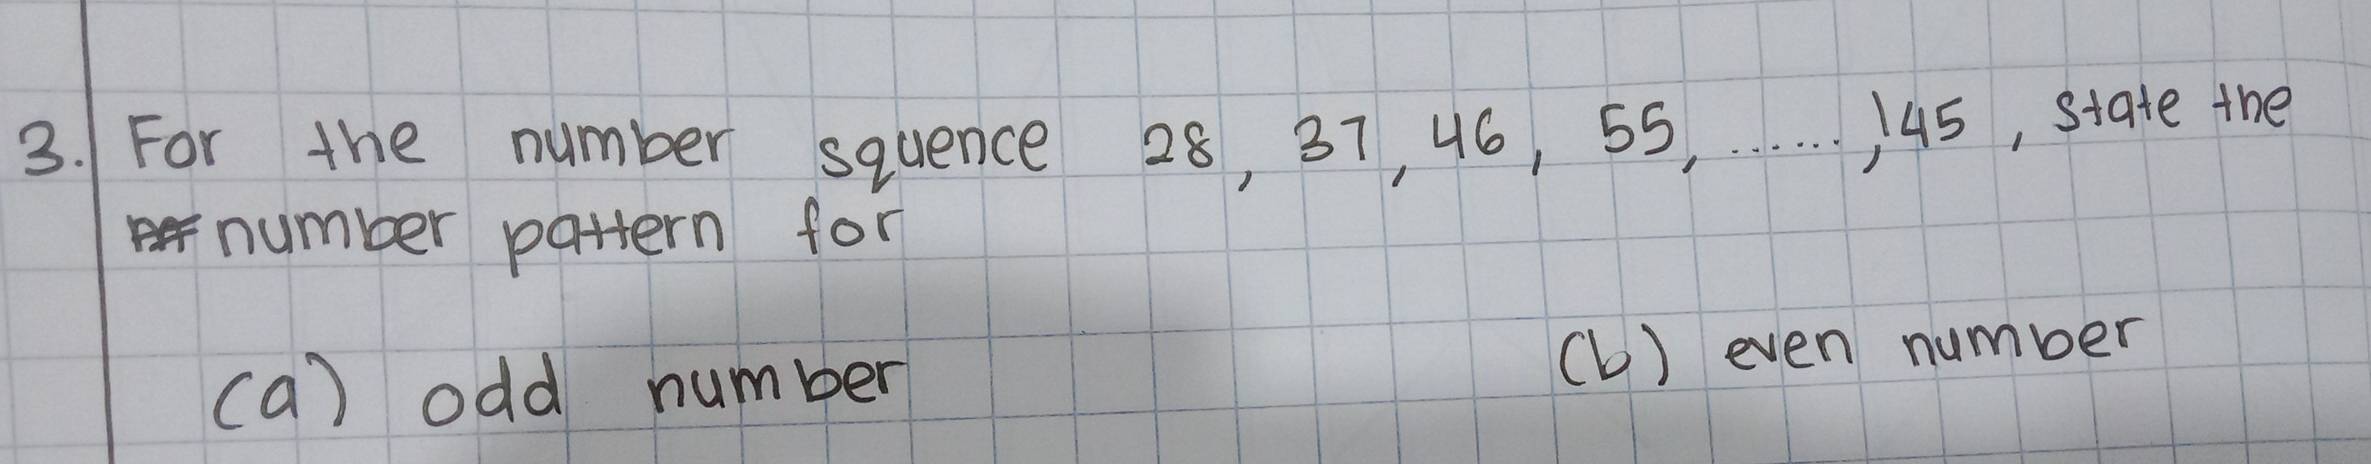 3. For the number squence 28, 37, 46, 55, ......, 145, state the
number pattern for
(a) odd number (b) even number